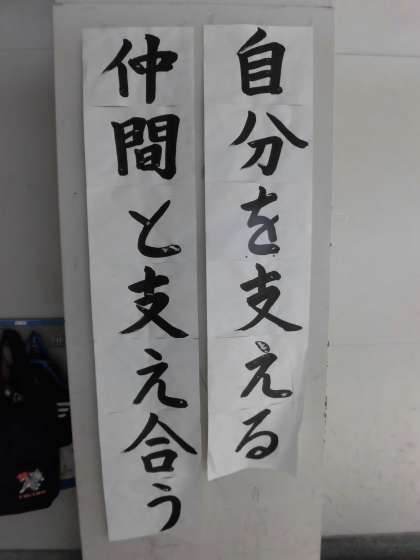 自分を支える
仲間と支え合う